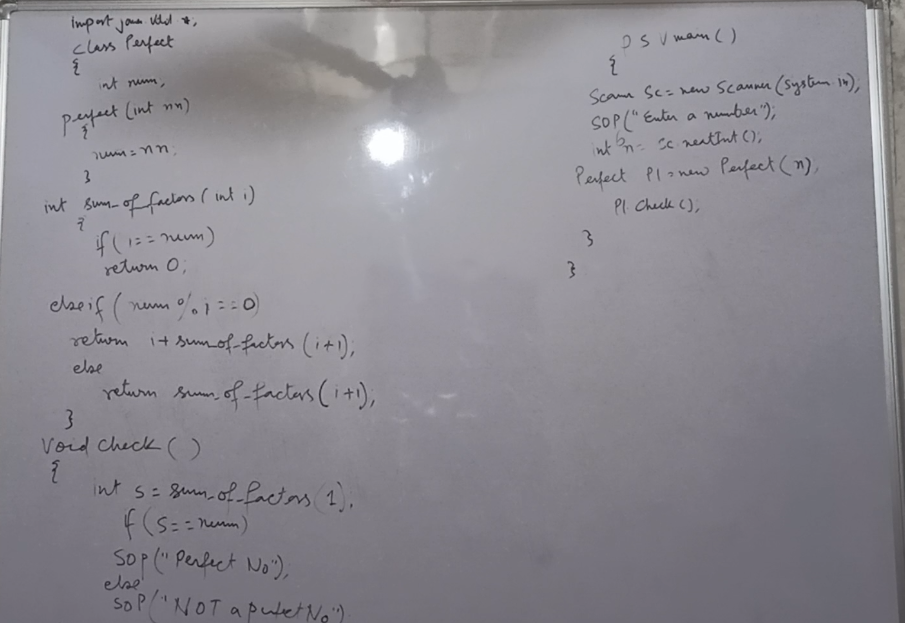 import java util *;
class Perfect
{
int num;
perfect (int nn)
{
num = nn;
}
int sum_of_factors (int i)
{
if (i == num)
return 0;
else if (num % i == 0)
return i + sum_of_factors (i+1);
else
return sum_of_factors (i+1);
}
Void Check ( )
{
int s = sum_of_factors (1);
if (s == num)
SOP ("Perfect No");
else
SOP ("NOT a perfect No")
P S V main ( )
{
Scann Sc = new Scanner (System in);
SOP ("Enter a number");
int n = Sc nextInt ();
Perfect P1 = new Perfect (n);
P1. Check ();
}
}